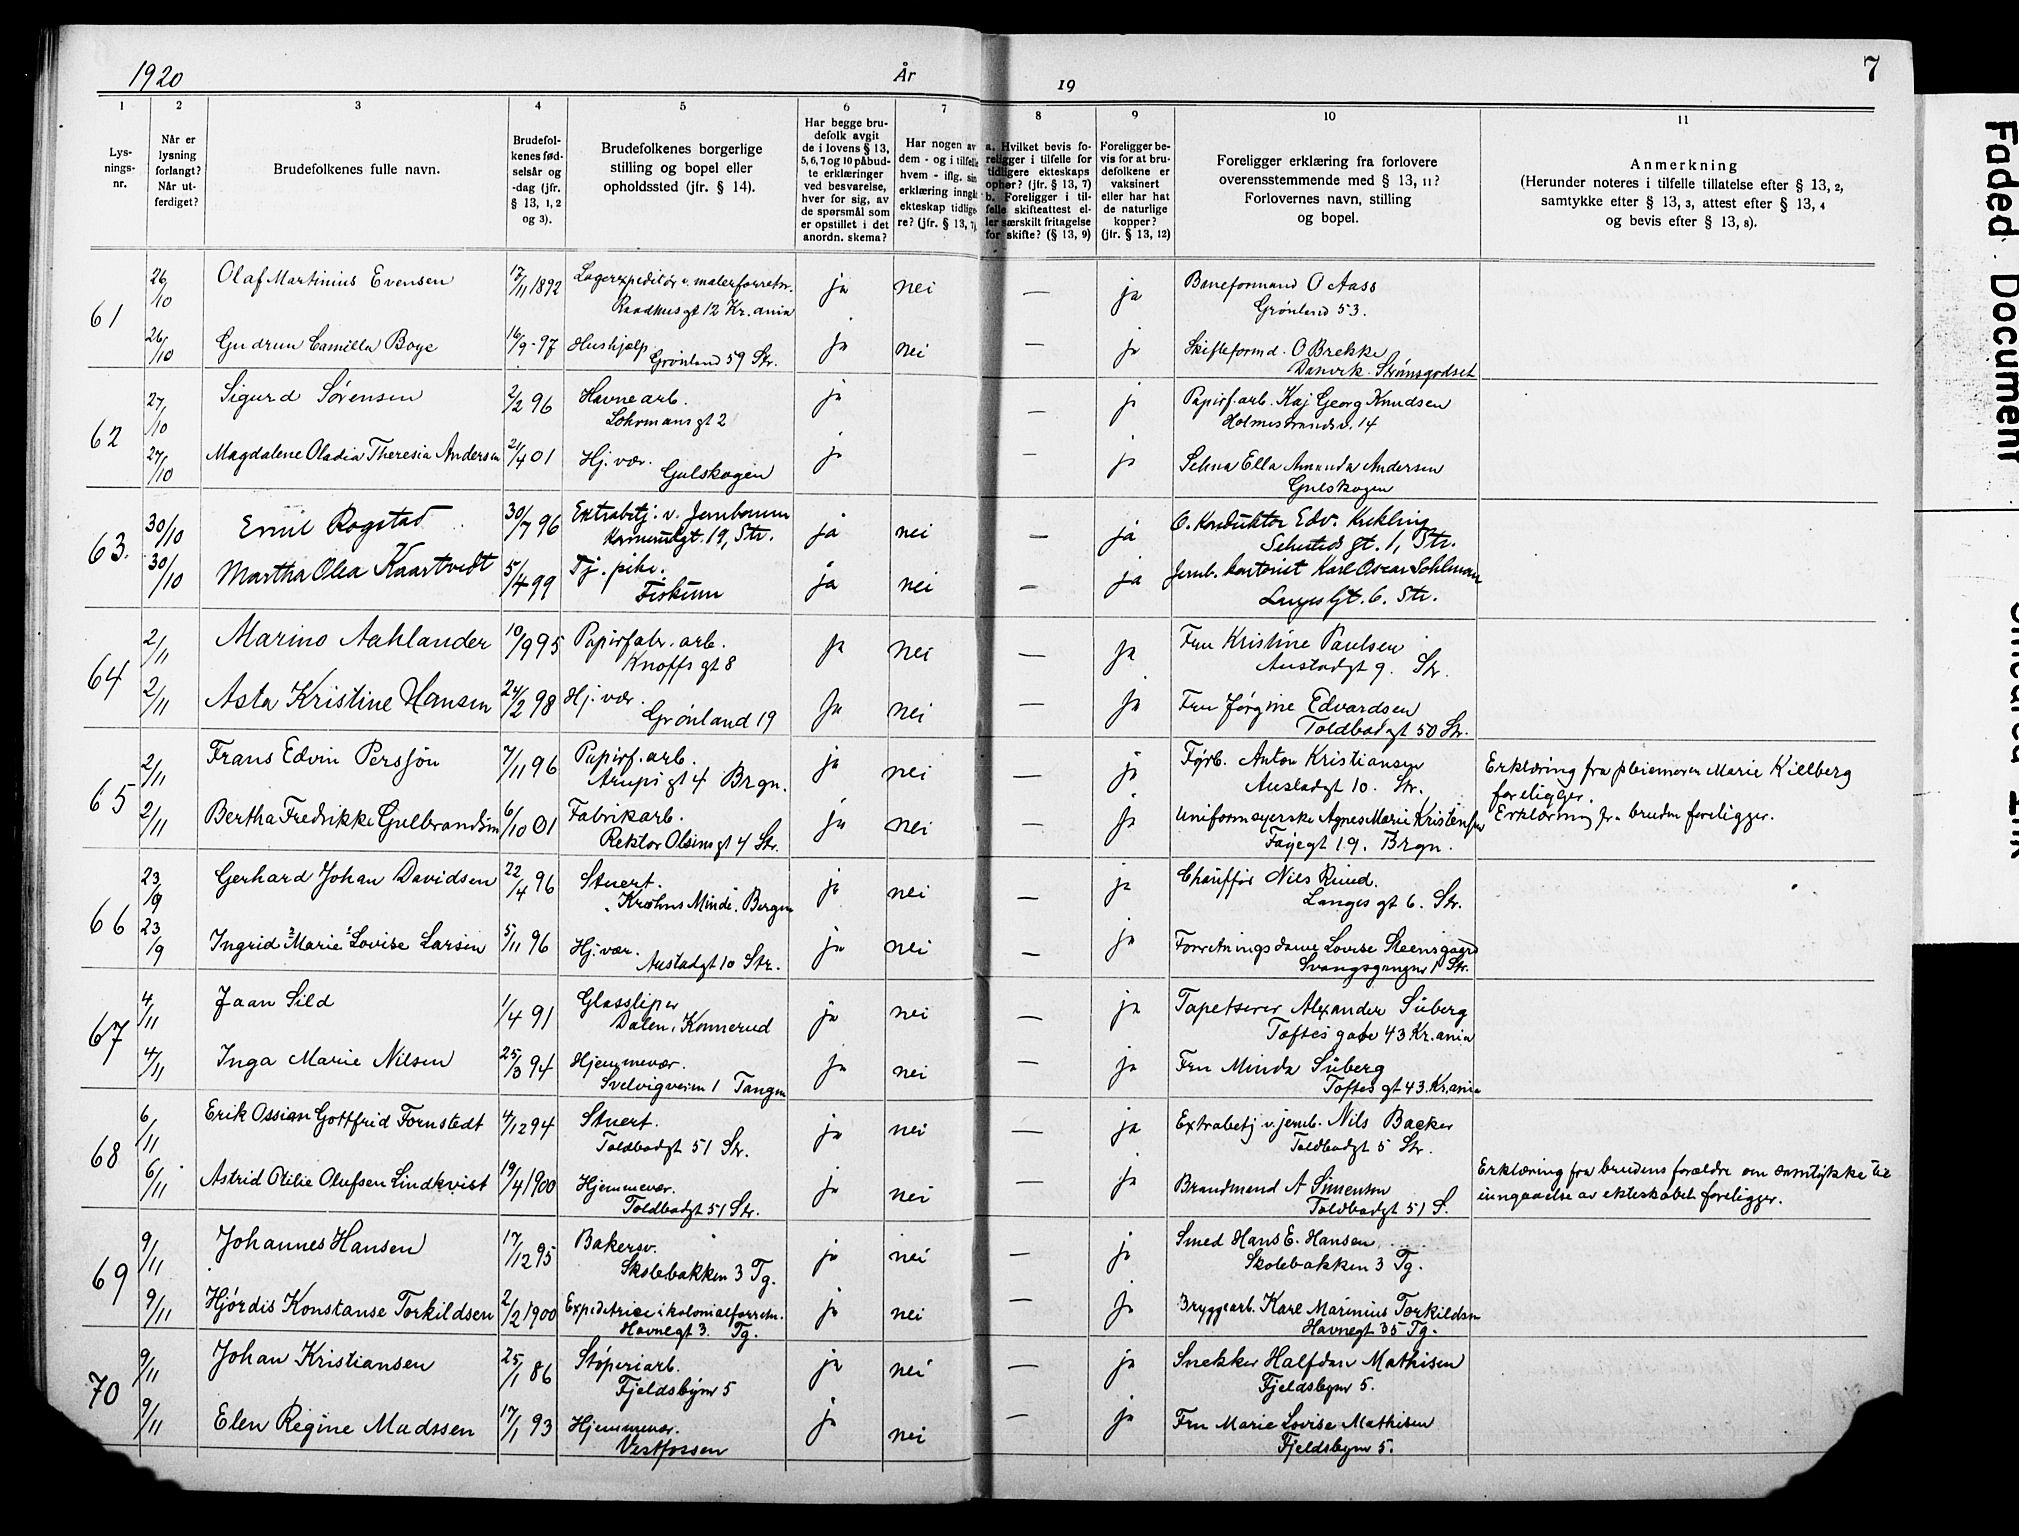 1920
År
19
7
1
2
3
4
5
6
7
8
9
10
11
Lys-
nings-
nr.
Når er
lysning
forlangt?
Når ut-
ferdiget?
Brudefolkenes fulle navn.
Brudefol-
kenes fød-
selsår og
-dag (jfr.
§ 13, 1, 2
og 3).
Brudefolkenes borgerlige
stilling og bopel eller
opholdssted (jfr. § 14).
Har begge bru-
defolk avgit
de i lovens § 13,
5, 6, 7 og 10 påbud-
te erklæringer
ved besvarelse,
hver for sig, av
de spørsmål som
er opstillet i det
anordn. skema?
Har nogen av
dem - og i tilfelle
hvem - iflg. sin
erklæring inngåt
ekteskap tidlige-
re? (jfr. § 13, 7)
a. Hvilket bevis fo-
religger i tilfelle for
tidligere ekteskaps
ophør? (jfr. § 13, 7)
b. Foreligger i til-
felle skifteattest el-
ler særskilt fritagelse
for skifte? (§ 13, 9)
Foreligger be-
vis for at bru-
defolkene er
vaksinert
eller har hat
de naturlige
kopper?
(jfr. § 13, 12)
Foreligger erklæring fra forlovere
overensstemmende med § 13, 11?
Forlovernes navn, stilling
og bopel.
Anmerkning
(Herunder noteres i tilfelle tillatelse efter § 13, 2,
samtykke efter § 13, 3, attest efter § 13, 4
og bevis efter § 13, 8).
61
26/10 Olaf Martinius Evensen 17/11 1892 Lagerxpeditør v. malerforretn. ja nei — ja Baneformand O Aass
Raadhusgt 12 Kr.ania Grønland 53.
26/10 Gudrun Camilla Boye 16/9-97 Hushjelp ja nei — ja Skifteformd. O Brekke
Grønland 59 Str. Danvik. Strømsgodset
62
27/10 Sigurd Sørensen 2/2 96 Havnearb. ja — ja Papirf.arb. Kaj Georg Knudsen
Lohrmansgt 2 Holmestrandsv. 14
27/10 Magdalene Oladia Theresia Andersen 21/4 01 Hj. vær. ja — ja Selma Ella Amanda Andersen
Gulskogen Gulskogen
63.
30/10 Emil Rogstad 30/7 96 Extrabetj. v. Jernbanen ja nei — ja O. Konduktør Edv. Kukling
19, Str. Sehesteds gt. 1, Str.
30/10 Martha Olea Kaartvedt 5/4 99 Tj. pike. ja nei — ja Jernb. kontorist Karl Oscar Sohlman
Fiskum Langes Gt. 6. Str.
64
2/11 Marino Aahlander 10/9 95 Papirfabr. arb. ja nei — ja Fru Kristine Paulsen
Knoffs gt 8 Austadgt 9. Str.
2/11 Asta Kristine Hansen 24/2 98 Hj. vær. ja nei — ja Fru Jørgine Edvardsen
Grønland 19 Toldbodgt 50 Str.
65
2/11 Frans Edvin Persjön 7/11 96 Papirf. arb. ja nei — ja Førb. Anton Kristiansen Erklæring fra pleiemoren Marie Killberg
Arups gt 4 Brgn. Austadgt 10. Str. foreligger.
2/11 Bertha Fredrikke Gulbrandsen 6/10 01 Fabrikarb. ja nei — ja Uniformsyerske Agnes Marie Kristensen Erklæring fr. bruden foreligger.
Rektor Olsensgt 4 Str. Fayegt 19. Brgn.
66
23/9 Gerhard Johan Davidsen 22/4 96 Stuert. ja nei — ja Chauffør Nils Ruud.
Krohns Minde. Bergen Langes gt 6. Str.
23/9 Ingrid Marie Lovise Larsen 5/11 96 Hj. vær. ja nei — ja Forretningsdame Lovise Steensgaard
Austadgt 10 Str. Svangsgangen 1 Str.
67
4/11 Jaan Sild 1/4 91 Glassliper ja nei — ja Tapetserer Alexander Süberg
Dalen, Konnerud Toftes gate 43 Kr.ania
4/11 Inga Marie Nilsen 25/3 94 Hjemmevær. ja nei — ja Fru Minda Süberg
Svelvigveien 1 Tangen Toftes gt 43. Kr.ania
68
6/11 Erik Ossian Gottfrid Fornstedt 4/12 94 Stuert. ja nei — ja Extrabetj v. jernb. Nils Backer
Toldbodgt 51 Str. Toldbodgt 5 Str.
6/11 Astrid Otilie Olufsen Lindkvist 19/4 1900 Hjemmevær. ja nei — ja Brandmand A Simenson Erklæring fra brudens forældre om samtykke til
Toldbodgt 51 Str. Toldbodgt 51 S. inngaaelse av ekteskabet foreligger.
69
9/11 Johannes Hansen 17/12 95 Bakersv. ja nei — ja Smed Hans E. Hansen
Skolebakken 3 Tg. Skolebakken 3 Tg.
9/11 Hjördis Konstanse Torkildsen 2/2 1900 Expeditrice i kolonialforretn. ja nei — ja Bryggearb. Karl Marinius Torkildsen
Havnegt 3. Tg. Havnegt 35 Tg.
70
9/11 Johan Kristiansen 25/1 86 Støperiarb. ja nei — ja Snekker Halfdan Mathisen
Fjeldsbyen 5 Fjeldsbyen 5.
9/11 Elen Regine Madssen 17/1 93 Hjemmevær. ja nei — ja Fru Marie Lovise Mathisen
Vestfossen Fjeldsbyen 5.
Faded Document